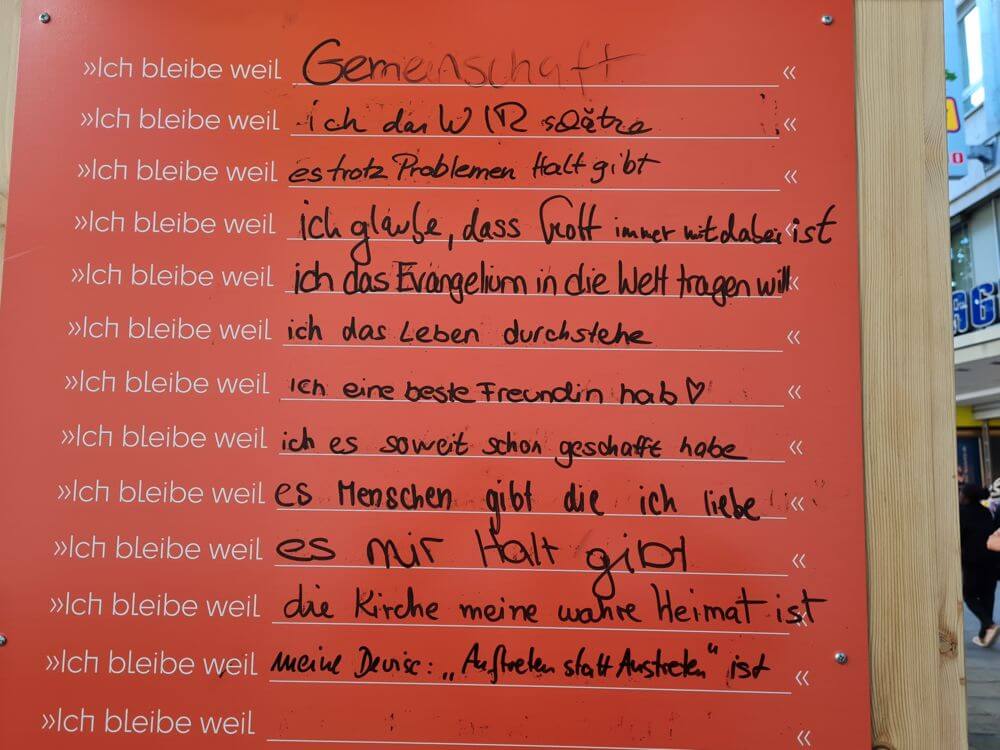 »Ich bleibe weil Gemeinschaft «
»Ich bleibe weil ich das WIR schätze «
»Ich bleibe weil es trotz Problemen Halt gibt «
»Ich bleibe weil ich glaube, dass Gott immer mit dabei ist «
»Ich bleibe weil ich das Evangelium in die Welt tragen will «
»Ich bleibe weil ich das Leben durchstehe «
»Ich bleibe weil ich eine beste Freundin hab♡ «
»Ich bleibe weil ich es soweit schon geschafft habe «
»Ich bleibe weil es Menschen gibt die ich liebe «
»Ich bleibe weil es mir Halt gibt «
»Ich bleibe weil die Kirche meine wahre Heimat ist «
»Ich bleibe weil meine Devise: „Auftreten statt Austreten" ist «
»Ich bleibe weil «